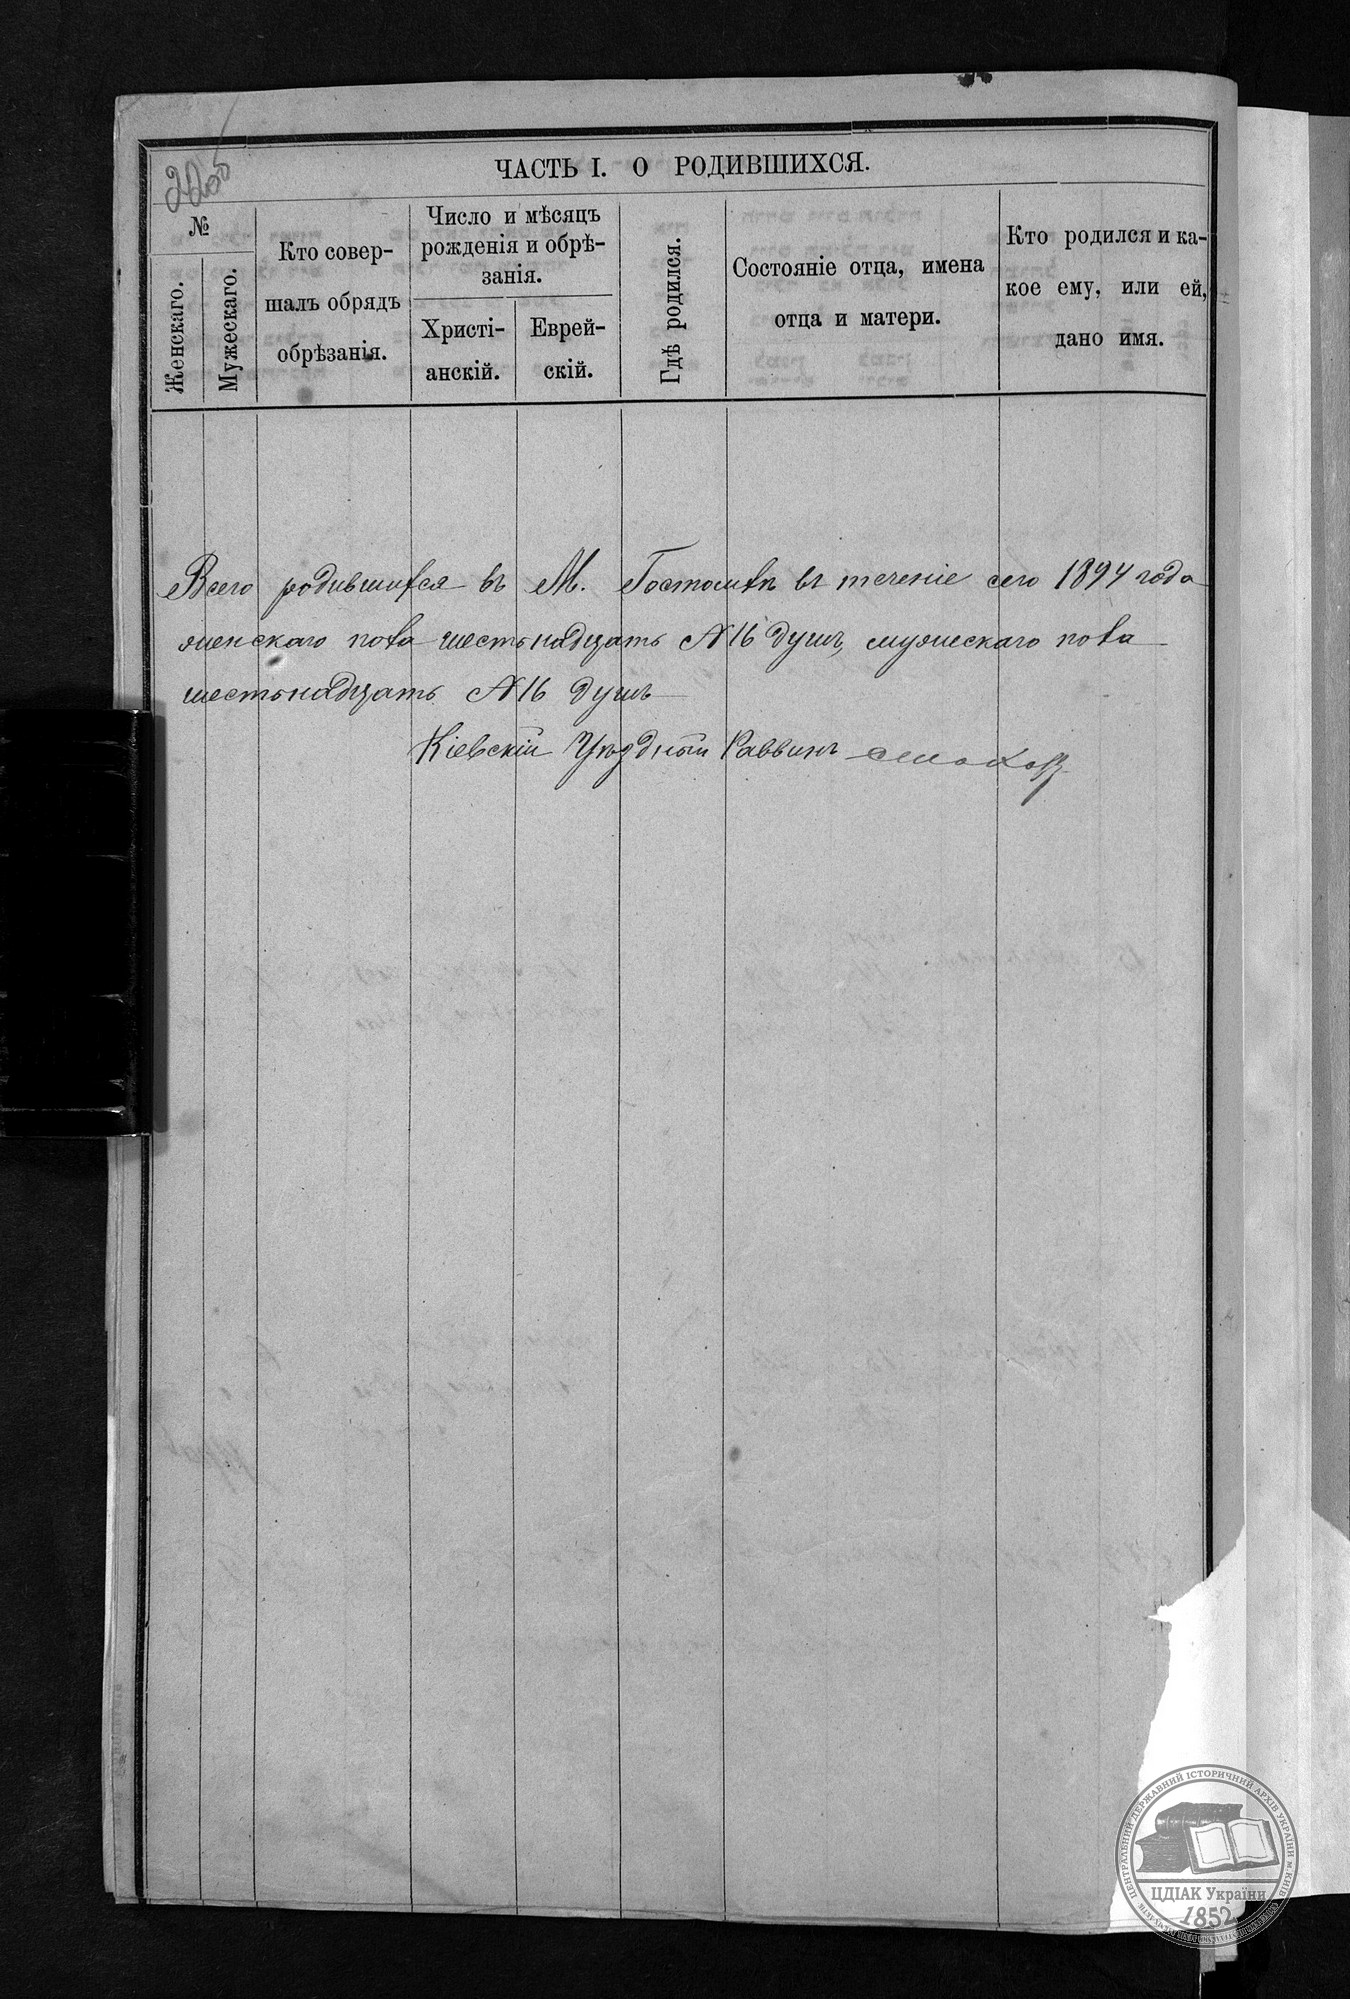 220об
ЧАСТЬ I. О РОДИВШИХСЯ.
№
Женскаго.
Мужескаго.
Кто совер-
шалъ обрядъ
обрѣзанія.
Число и мѣсяцъ
рожденія и обрѣ-
занія.
Христі-
анскій.
Еврей-
скій.
Гдѣ родился.
Состояніе отца, имена
отца и матери.
Кто родился и ка-
кое ему, или ей,
дано имя.
Всего родившихся въ М. Гостомлѣ въ теченіе сего 1894 года
женскаго пола шестьнадцать №16 душъ, мужескаго пола
шестьнадцать №16 душъ
Кіевскій Уѣздный Раввинъ
ЦЕНТРАЛЬНИЙ ДЕРЖАВНИЙ ІСТОРИЧНИЙ АРХІВ УКРАЇНИ м. КИЇВ
ЦДІАК України
1852